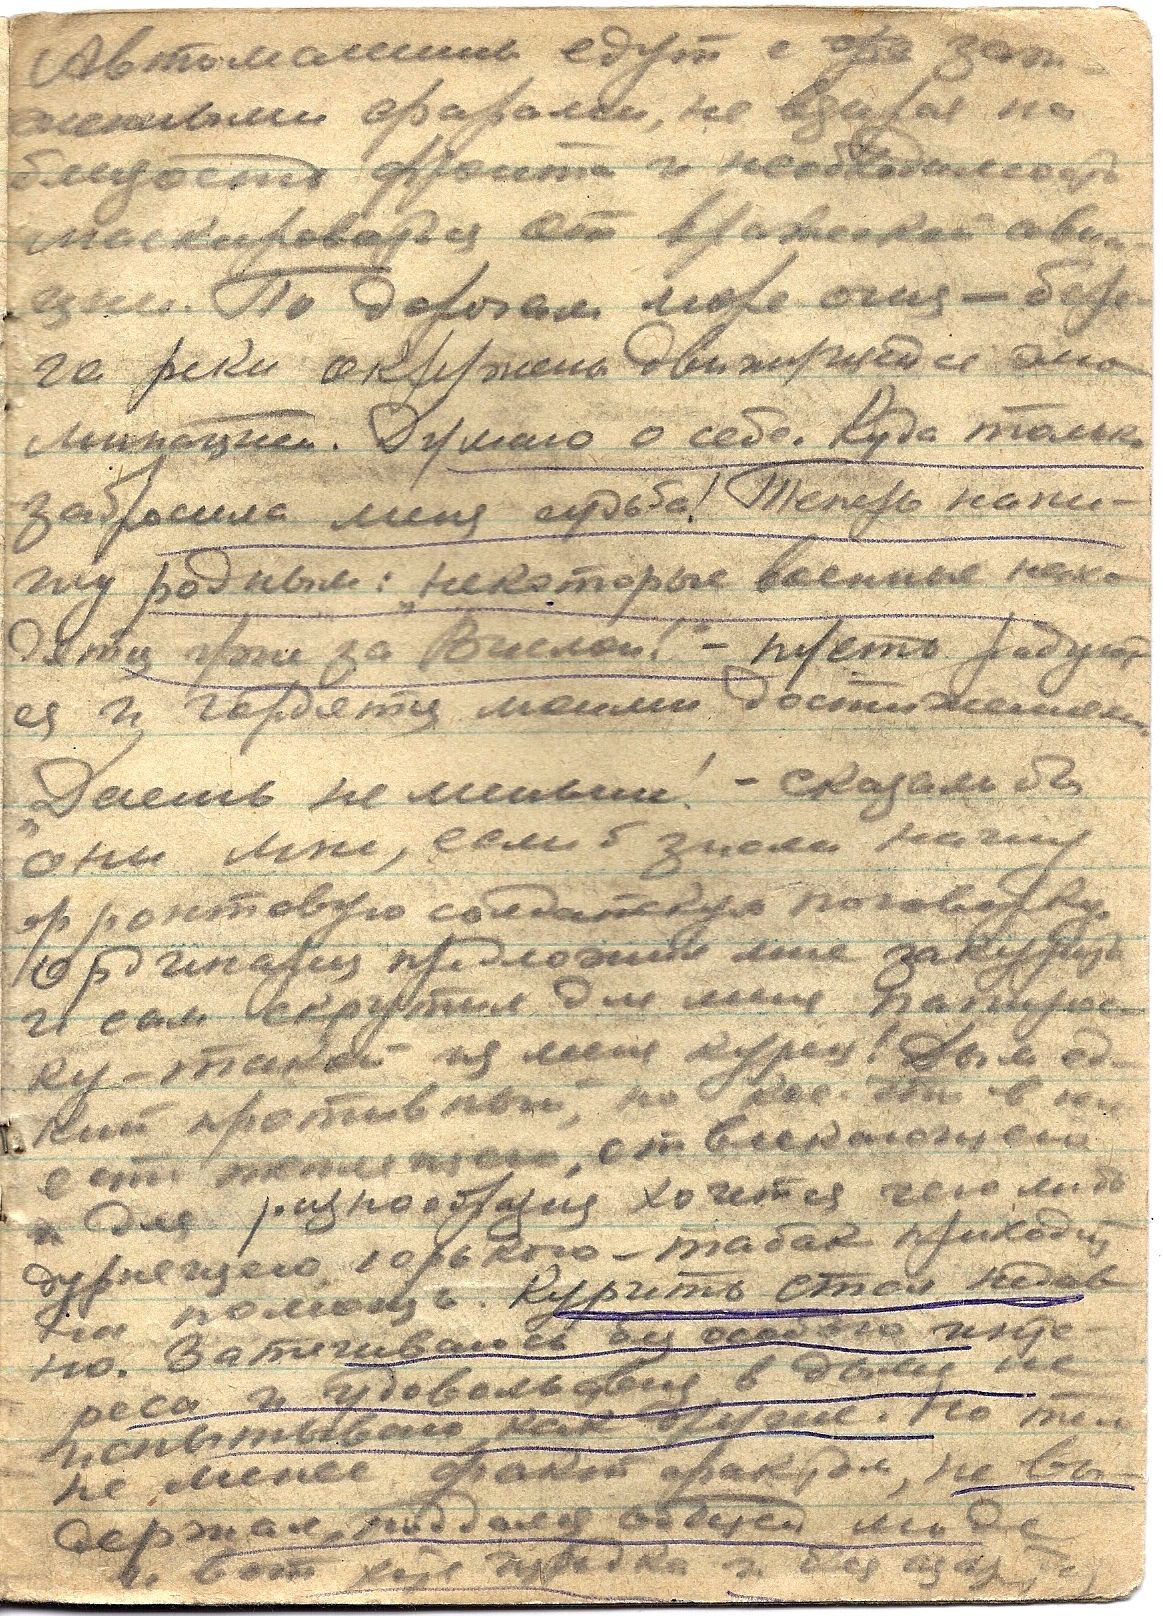 Автомашины едут с заж-
женными фарами, не взирая на
близость фронта и необходимость
маскироваться от вражеской авиа-
ции. По дорогам море огня — бере-
га реки окружены движущейся иллю-
минацией. Думаю о себе. Куда только
забросила меня судьба! Теперь напи-
шу родным: „некоторые военные нахо-
дятся уже за Вислой!“ – пусть радуют
ся и гордятся моими достижениями.
„Даешь не меньше! – сказали бы
они мне, если б знали нашу
фронтовую солдатскую поговорку.
Ординарец предложил мне закурить
и сам скрутил для меня папирос-
ку – такой из меня курец! Дым ед-
кий противный, но кое что в нем
есть отвлекающего
и для разнообразия хочется чего либо
дурнящего горького – табак приходит
на помощь. Курить стал недав
но. Затягиваюсь без особого инте-
реса и удовольствия в дыму не
испытываю, как другие. Но тем
не менее факт фактом, не вы-
держал, поддался общей моде
и вот уже и